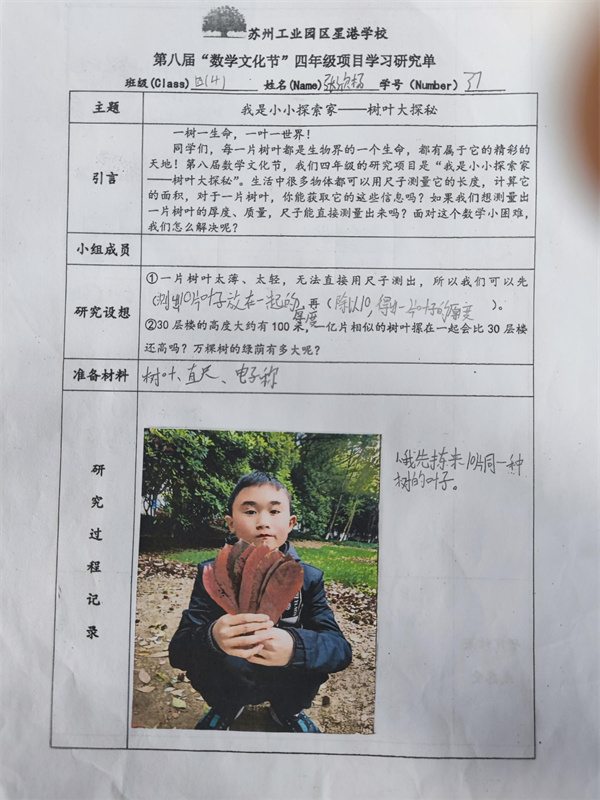 苏州工业园区星港学校
第八届“数学文化节”四年级项目学习研究单
班级(Class) 四(4) 姓名(Name) 张 杨 学号 (Number) 37
主题 我是小小探索家——树叶大探秘
引言
一树一生命，一叶一世界！
同学们，每一片树叶都是生物界的一个生命，都有属于它的精彩的
天地！第八届数学文化节，我们四年级的研究项目是“我是小小探索家
——树叶大探秘”。生活中很多物体都可以用尺子测量它的长度，计算它
的面积，对于一片树叶，你能获取它的这些信息吗？如果我们想测量出
一片树叶的厚度、质量，尺子能直接测量出来吗？面对这个数学小困难，
我们怎么解决呢？
小组成员
研究设想
①一片树叶太薄、太轻，无法直接用尺子测出，所以我们可以先
（测出10片叶子放在一起的厚度），再（除以10，得出一片叶子的厚度）。
②30层楼的高度大约有100米，一亿片相似的树叶摞在一起会比30层楼
还高吗？万棵树的绿荫有多大呢？
准备材料 树叶、直尺、电子称
研究过程记录
1、我先拣来10片同一种
树的叶子。